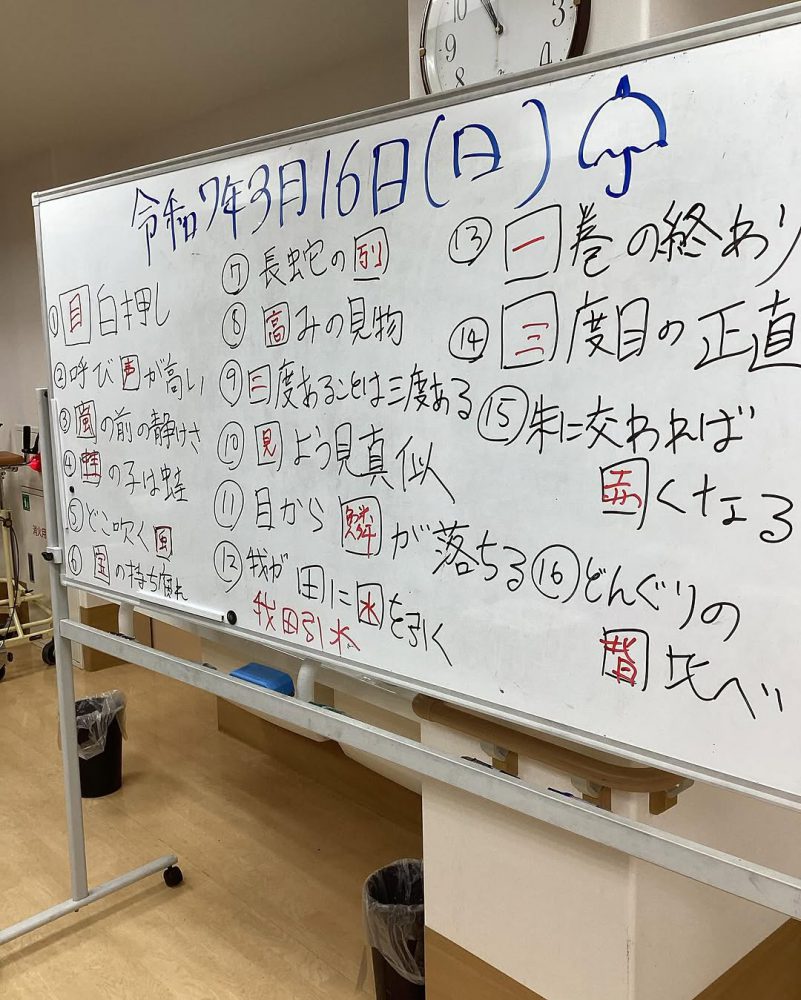 令和7年3月16日(日)
① 目白押し
② 呼び声が高い
③ 嵐の前の静けさ
④ 蛙の子は蛙
⑤ どこ吹く風
⑥ 宝の持ち腐れ
⑦ 長蛇の列
⑧ 高みの見物
⑨ 二度あることは三度ある
⑩ 見よう見真似
⑪ 目から鱗が落ちる
⑫ 我が田に水を引く
我田引水
⑬ 一巻の終わり
⑭ 三度目の正直
⑮ 朱に交われば
赤くなる
⑯ どんぐりの
背比べ
10
9
8
3
消火用